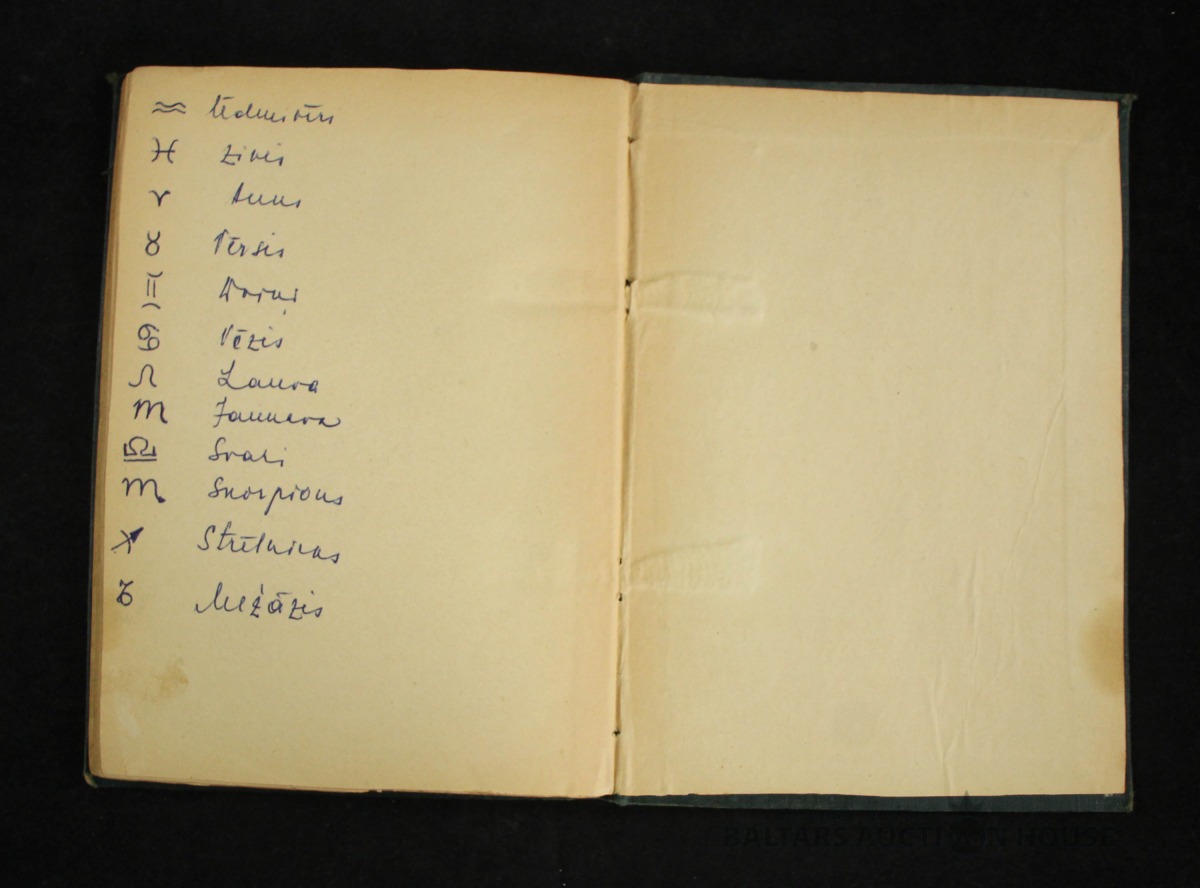 ♒ Ūdensvīrs
♓ Zivis
♈ Auns
♉ Vērsis
♊ Dvīņi
♋ Vēzis
♌ Lauva
♏ Jaunava
♎ Svari
♏ Skorpions
♐ Strēlnieks
♑ Mežāzis
BALTARS AUCTION HOUSE